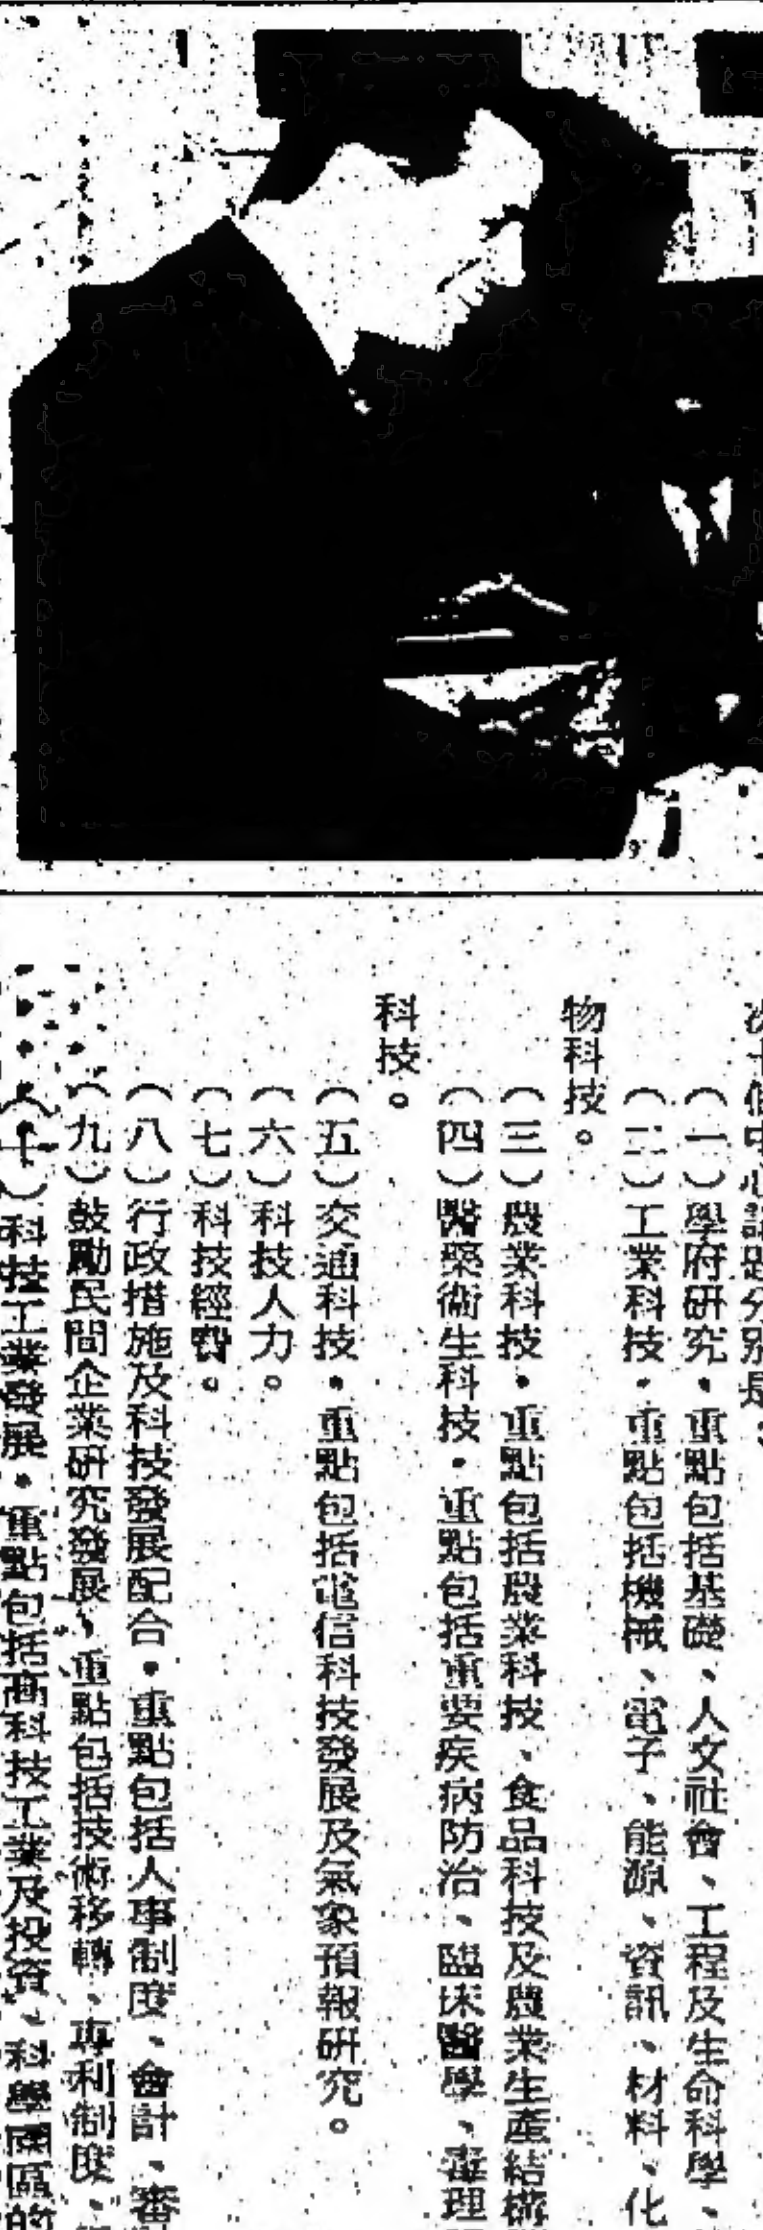 次十個中心議題分別是：
（一）學府研究．重點包括基礎、人文社會、工程及生命科學、
（二）工業科技．重點包括機械、電子、能源、資訊、材料、化
物科技。
（三）農業科技．重點包括農業科技、食品科技及農業生產結構
（四）醫藥衞生科技．重點包括重要疾病防治、臨床醫學、毒理
科技。
（五）交通科技．重點包括電信科技發展及氣象預報研究。
（六）科技人力。
（七）科技經費。
（八）行政措施及科技發展配合．重點包括人事制度、會計、審
（九）鼓勵民間企業研究發展、重點包括技術移轉、專利制度、
（十）科技工業發展．重點包括高科技工業及投資、科學園區的